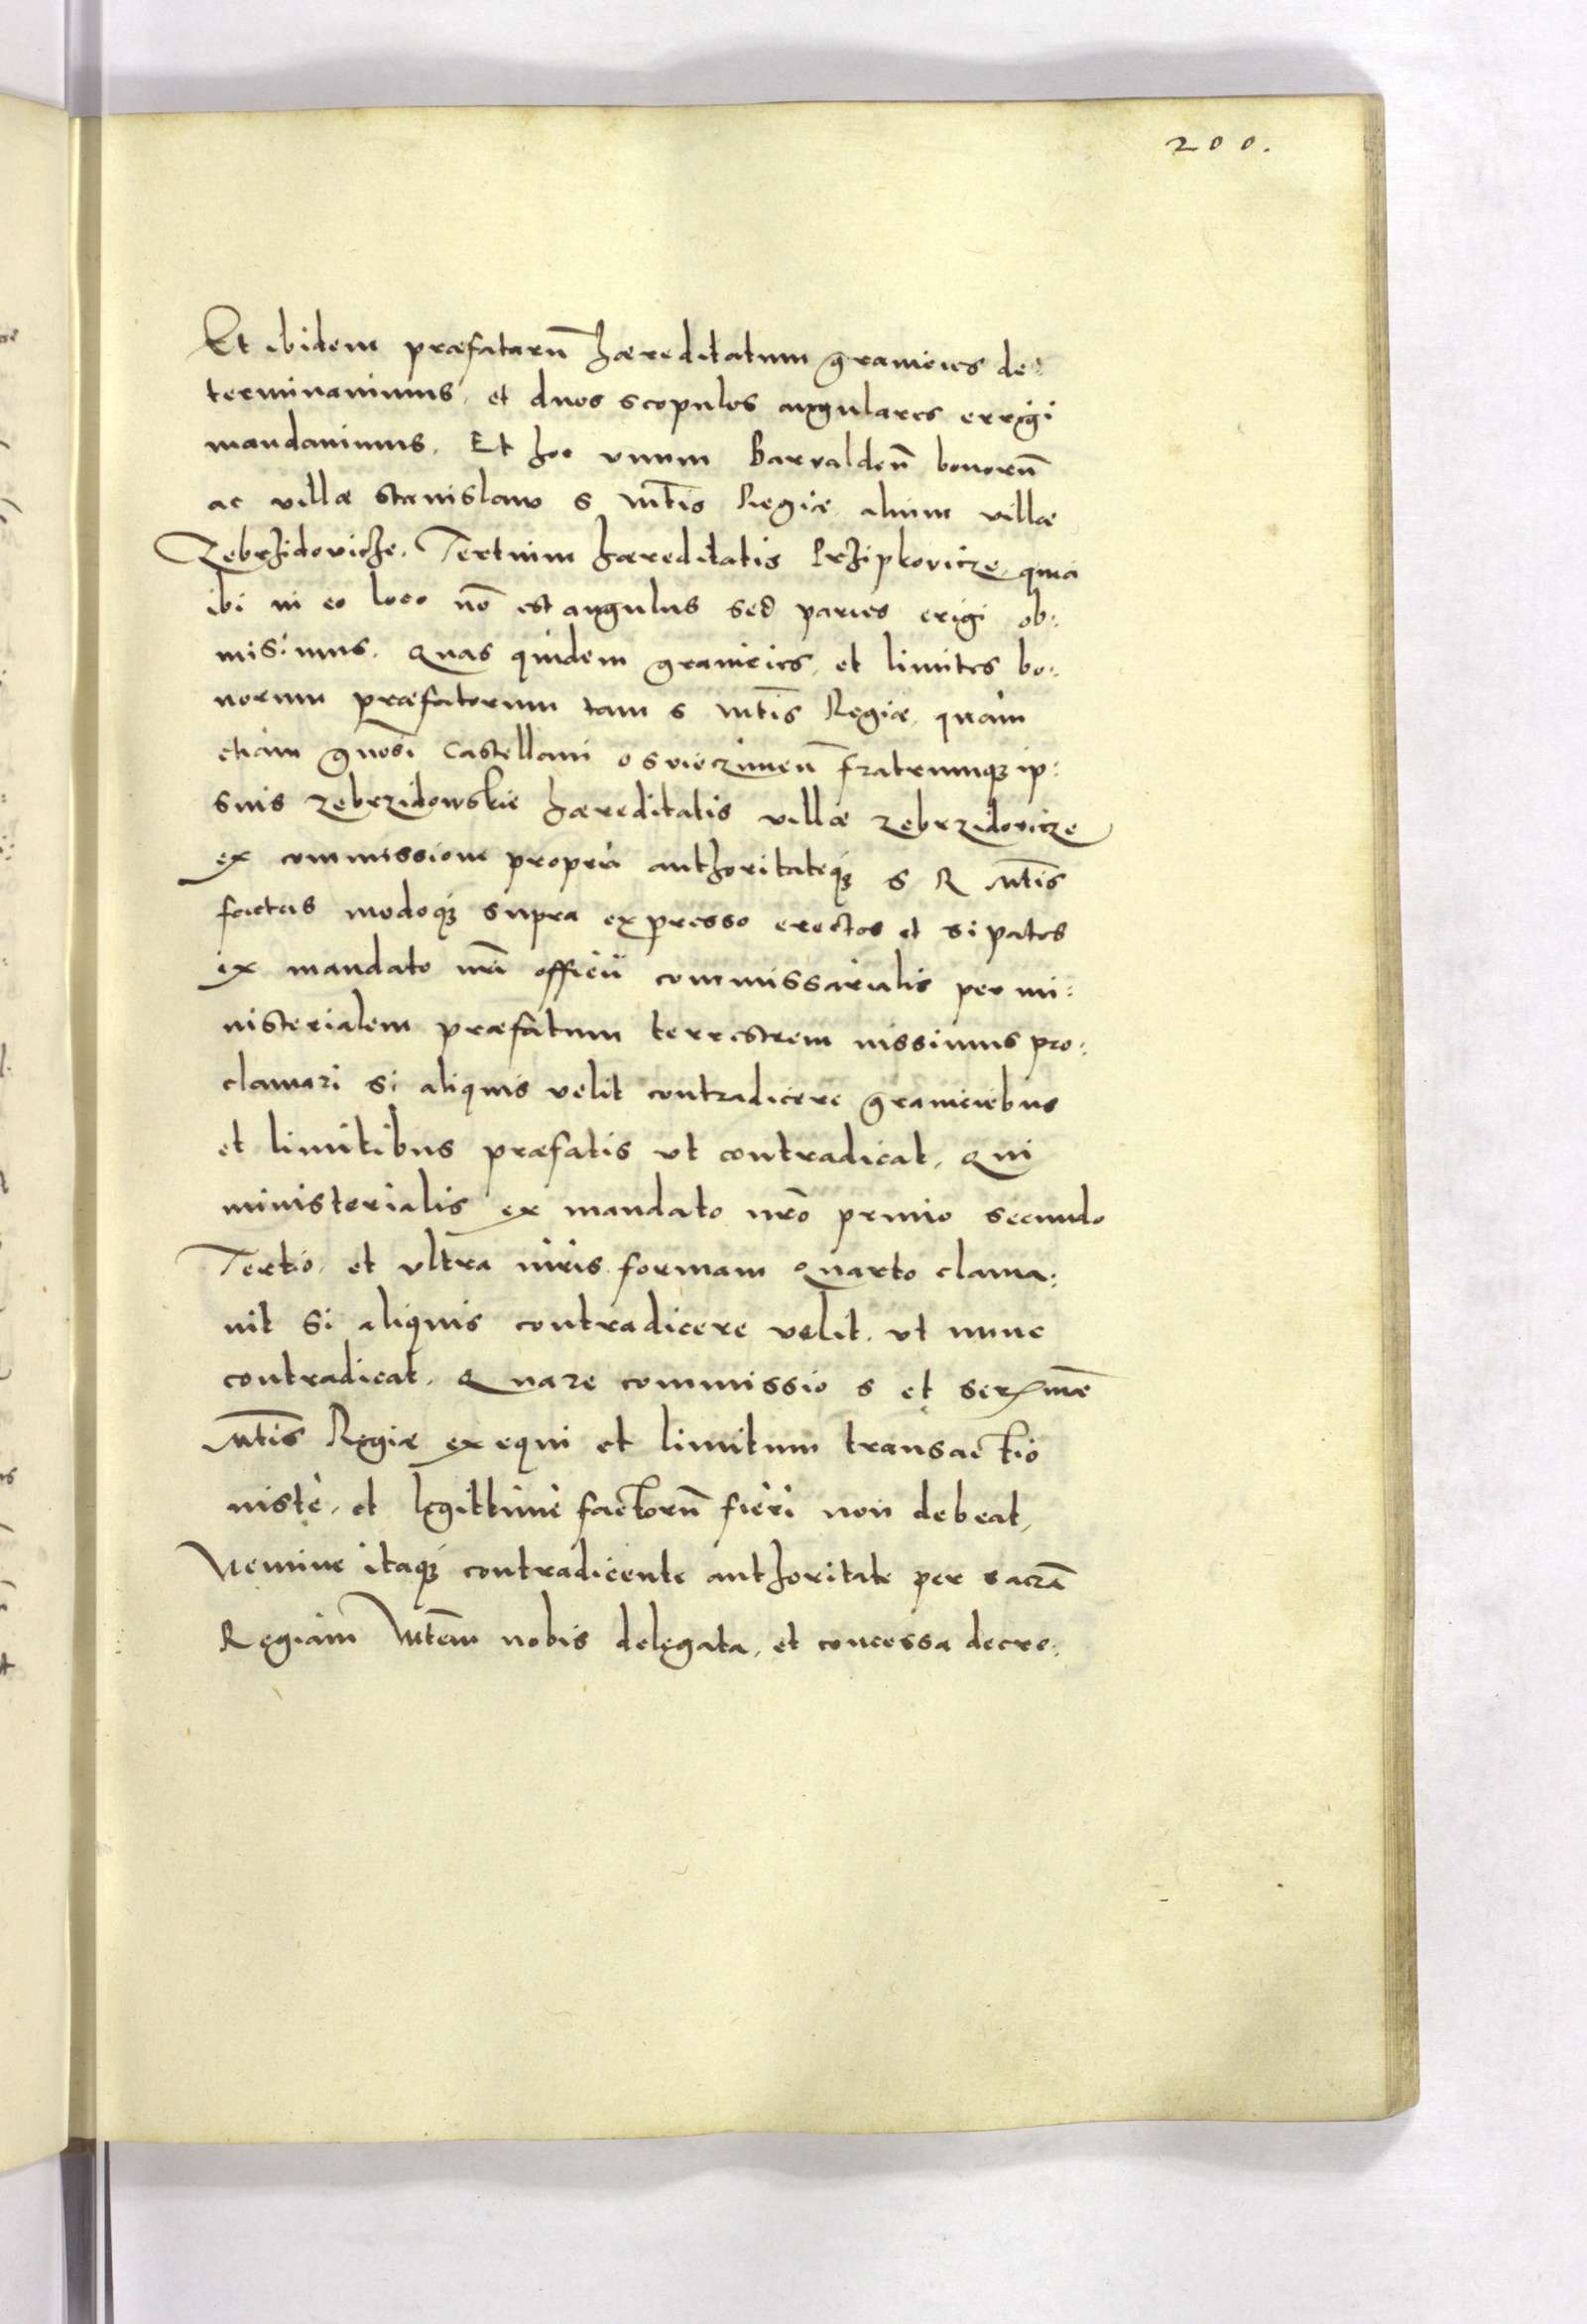 200.
Et ibidem præfatarū hæreditatum granicies de:
terminauimus, et duos scopulos angulares errigi
mandauimus. Et hoc vnum Barvalden̄ bonorū
ac villæ Stanislaw S Mt̄is Regiæ alium villæ
Zebrzidovicze. Tertium hæreditatis Przipkovicze, quia
ibi in eo loco nō est angulus sed paries erigi ob:
misimus. Quas quidem granicies, et limites bo:
norum præfatorum tam S Mt̄is Regiæ, quàm
etiam gn̄osi Castellani osviecimen̄ fratrumq̨ ip:
suis Zebrzidowskie hæreditatis villæ Zebrzidovicze
ex commissione propria authoritateq̨ S R Mt̄is
factas modoq̨ supra expresso erectos et sipatos
ex mandato nr̄i officii commissarialis per mi:
nisterialem præfatum terrestrem iussimus pro:
clamari si aliquis velit contradicere graniciebus
et limitibus præfatis vt contradicat, Qui
ministerialis ex mandato nr̄o primo secundo
Tertio, et vltra iuris formam quarto clama:
uit si aliquis contradicere velit, vt nunc
contradicat, Quare commissio S et Sermæ
Mt̄is Regiæ exequi et limitum transactio
iustè, et legittimè factorū fieri non debeat,
Nemine itaq̨ contradicente authoritate per sacrā
Regiam Mt̄em nobis delegata, et concessa decre: